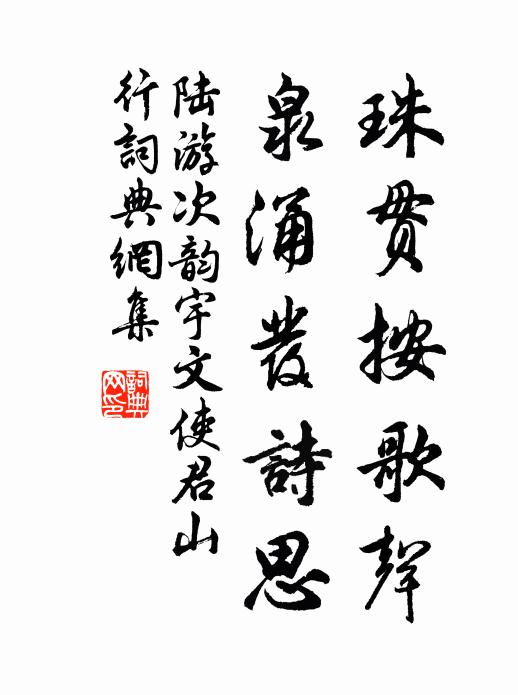 珠貫按歌聲
泉涌發詩思
陆游次韵宇文使君山
行詞典網集
詞典
网印